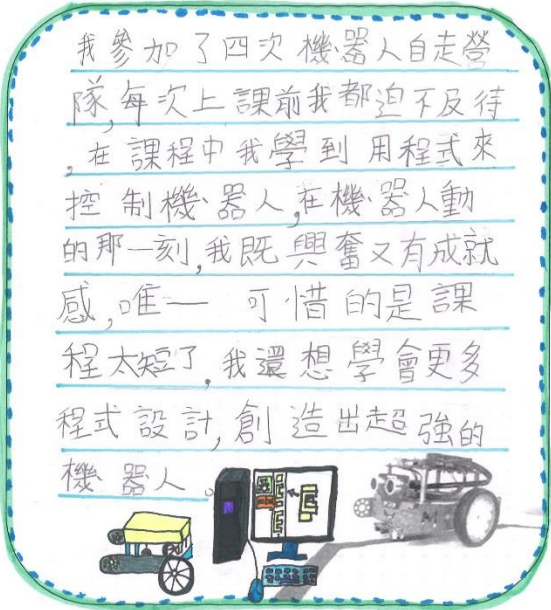 我參加了四次機器人自走營
隊,每次上課前我都迫不及待
,在課程中我學到用程式來
控制機器人,在機器人動
的那一刻,我既興奮又有成就
感,唯一可惜的是課
程太短了,我還想學會更多
程式設計,創造出超強的
機器人。